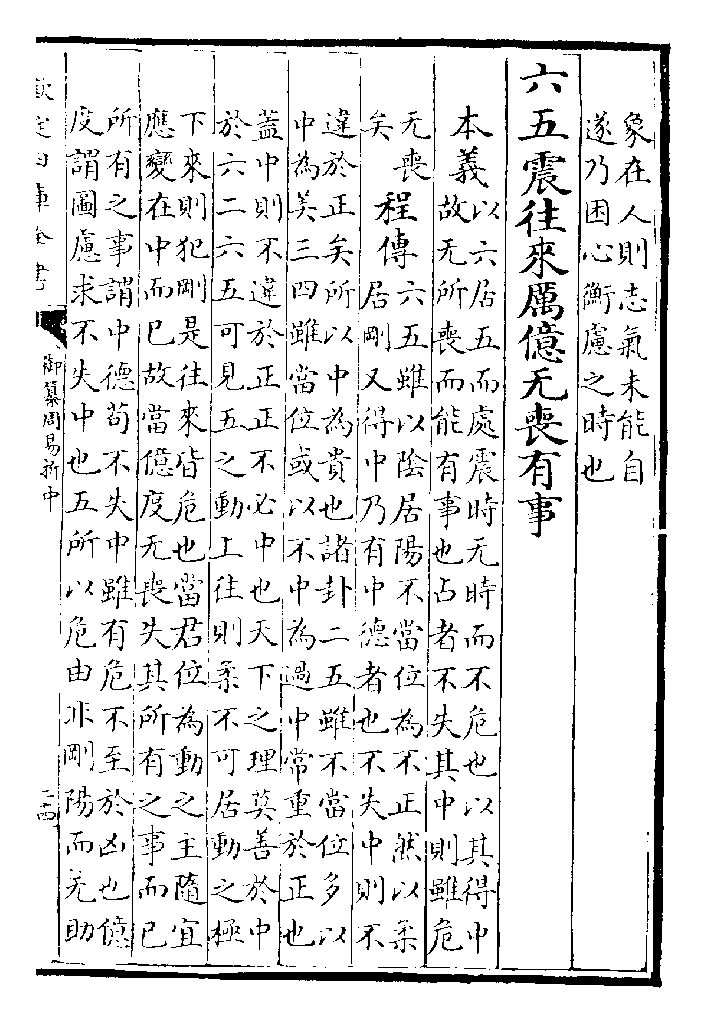 象在人則志氣未能自
遂乃困心衡慮之時也
六五震往來厲億无喪有事
本義以六居五而處震時无時而不危也以其得中
故无所喪而能有事也占者不失其中則雖危
无喪
矣程傳六五雖以陰居陽不當位為不正然以柔
居剛又得中乃有中德者也不失中則不
違於正矣所以中為貴也諸卦二五雖不當位多以
中為美三四雖當位或以不中為過中常重於正也
蓋中則不違於正正不必中也天下之理莫善於中
於六二六五可見五之動上往則柔不可居動之極
下來則犯剛是往來皆危也當君位為動之主隨宜
應變在中而已故當億度无喪失其所有之事而已
所有之事謂中德苟不失中雖有危不至於凶也億
度謂圖慮求不失中也五所以危由非剛陽而无助
欽定四庫全書
御纂周易折中
二四